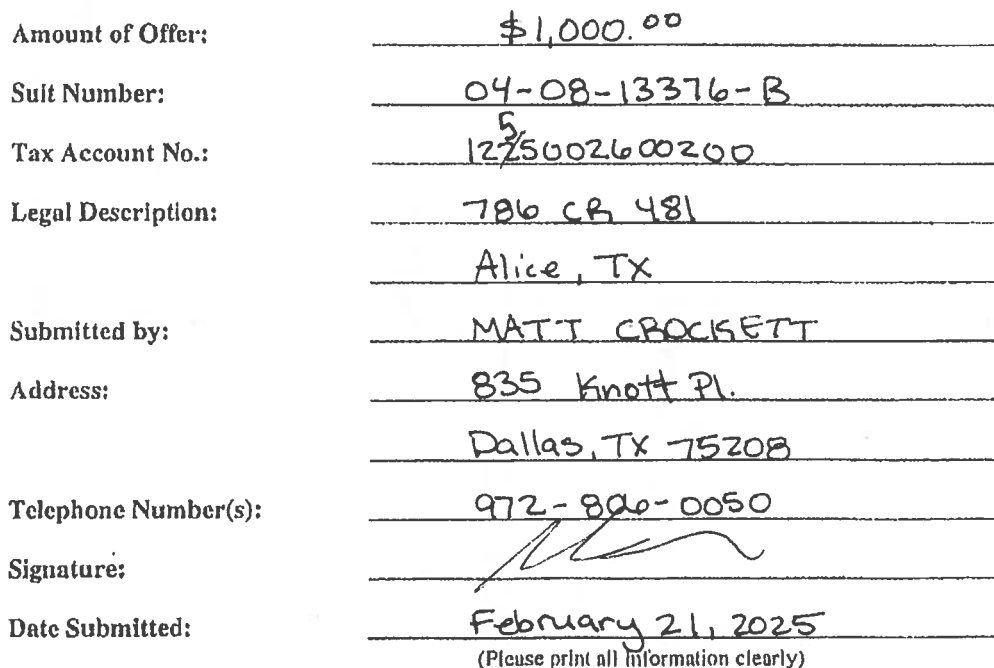 Amount of Offer: $1,000.00
Suit Number: 04-08-13376-B
5
Tax Account No.: 1225002600200
Legal Description: 786 CR 481
Alice, TX
Submitted by: MATT CROCKETT
Address: 835 Knott Pl.
Dallas, TX 75208
Telephone Number(s): 972-806-0050
Signature:
Date Submitted: February 21, 2025
(Please print all information clearly)